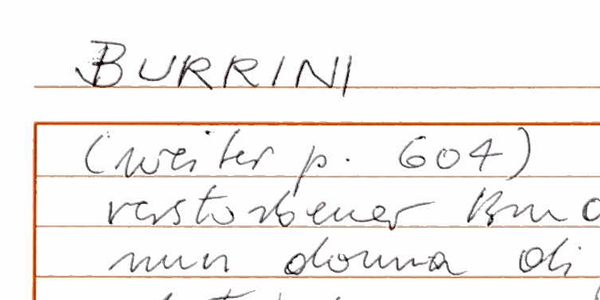 BURRINI
(weiter p. 604)
verstorbener
nun donna di